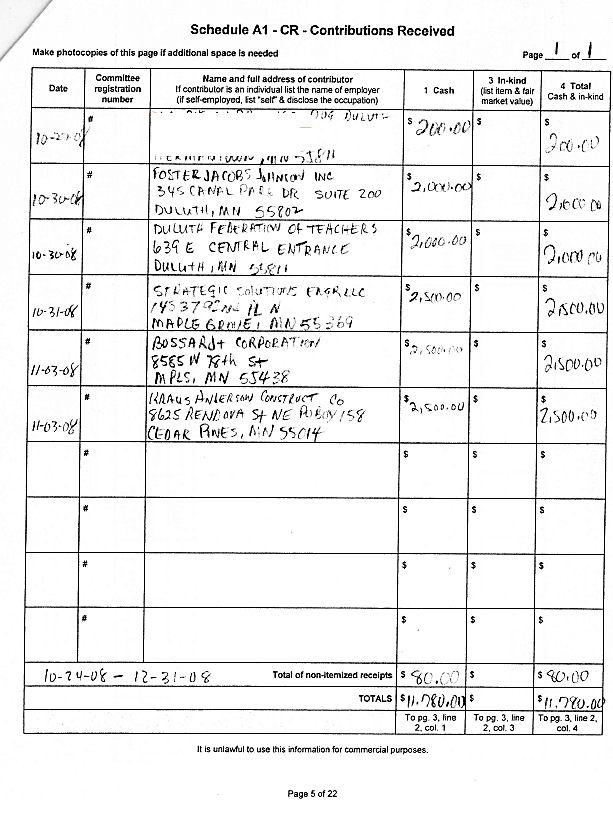 Schedule A1 - CR - Contributions Received
Make photocopies of this page if additional space is needed
Page 1 of 1
Date
Committee registration number
Name and full address of contributor
If contributor is an individual list the name of employer
(if self-employed, list "self" & disclose the occupation)
1 Cash
3 In-kind
(list item & fair market value)
4 Total
Cash & in-kind
# DULUTH $ 200.00 $ $
10-29-08 200.00
MN 55811
# FOSTER JACOBS JOHNSON INC $ 2,000.00 $ $
10-30-08 345 CANAL PARK DR SUITE 200 2,000.00
DULUTH, MN 55802
# DULUTH FEDERATION OF TEACHERS $ 2,000.00 $ $
10-30-08 639 E CENTRAL ENTRANCE 2,000.00
DULUTH, MN 55811
# STRATEGIC SOLUTIONS ENGR LLC $ 2,500.00 $ $
10-31-08 PL N 2,500.00
MAPLE GROVE, MN 55369
# BOSSARDT CORPORATION $ 2,500.00 $ $
11-03-08 8585 W 78th St 2,500.00
MPLS, MN 55438
# KRAUS ANDERSON CONSTRUCT CO $ 2,500.00 $ $
11-03-08 8625 RENDOVA St NE PO BOX 158 2,500.00
CEDAR PINES, MN 55014
# $ $ $
# $ $ $
# $ $ $
# $ $ $
10-24-08 - 12-31-08 Total of non-itemized receipts $ 80.00 $ $ 80.00
TOTALS $ 11,780.00 $ $ 11,780.00
To pg. 3, line 2, col. 1
To pg. 3, line 2, col. 3
To pg. 3, line 2, col. 4
It is unlawful to use this information for commercial purposes.
Page 5 of 22